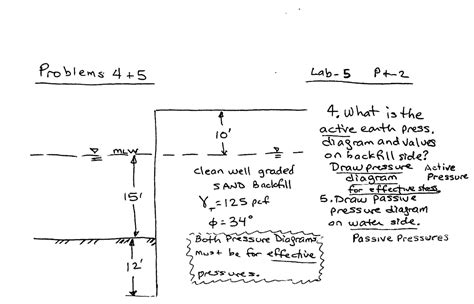 Problems 4+5
Lab-5 Pt-2
10'
MLW
15'
12'
clean well graded
SAND Backfill
γT = 125 pcf
φ = 34°
Both Pressure Diagrams
must be for effective
pressures.
4. What is the
active earth press.
diagram and values
on backfill side?
Draw pressure
diagram
for effective stress
Active
Pressure
5. Draw Passive
pressure diagram
on water side.
Passive Pressures